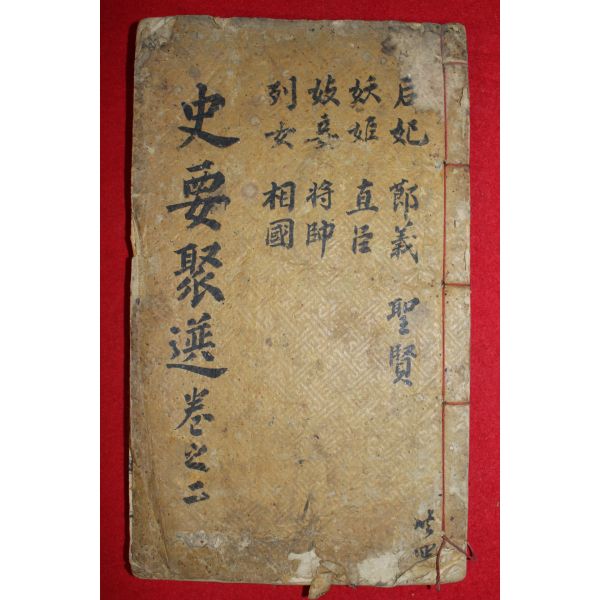 后妃 節義 聖賢
妖姬 直臣
妓妾 将帥
列女 相國
史要聚選卷之二
共四